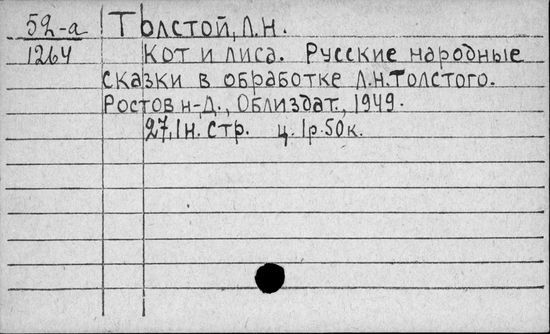 52-а
1264
Толстой, Л.Н.
Кот и лиса. Русские народные
сказки в обработке Л.Н.Толстого.
Ростов н-Д., Облиздат, 1949.
27, 1н. стр. ц. 1р.50к.